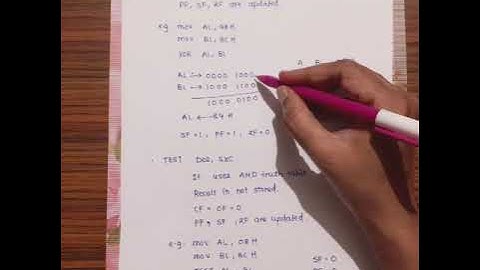 PF, SF, ZF are updated.
eg. mov AL, 08H
mov BL, 8CH
XOR AL, BL
AL → 0000 1000
BL → 1000 1100
1000 0100
AL ← 84 H
SF = 1, PF = 1, ZF = 0
• TEST DES, SRC
It uses AND truth table
Result is not stored.
CF = OF = 0
PF, SF, ZF are updated.
e.g. mov AL, 08H
mov BL, 8CH
SF = 0